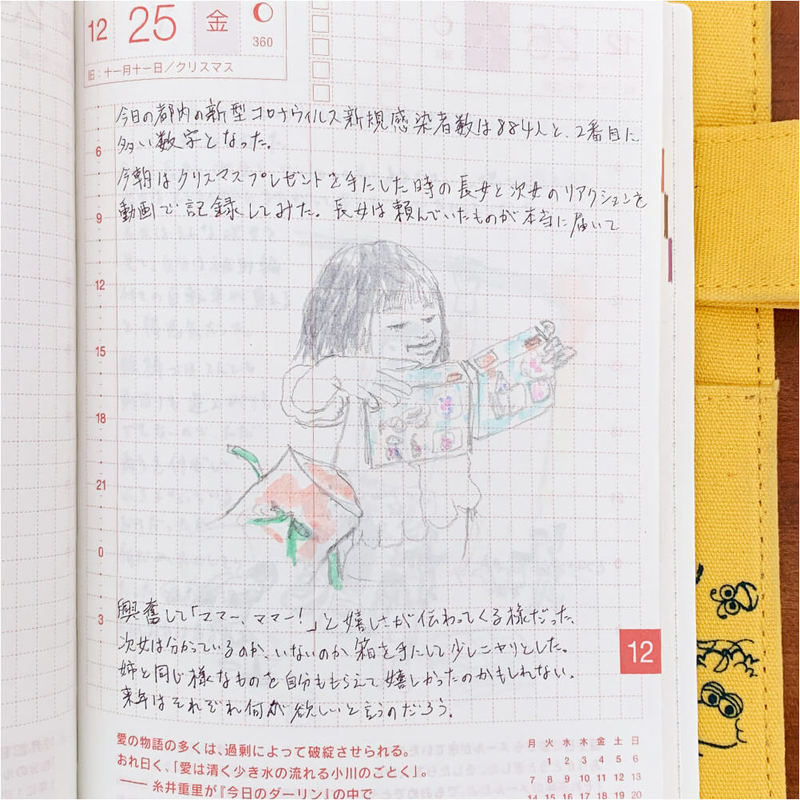 12 25 金
360
旧：十一月十一日／クリスマス
今日の都内の新型コロナウイルス新規感染者数は884人と、2番目に
多い数字となった。
今朝はクリスマスプレゼントを手にした時の長女と次女のリアクションを
動画で記録してみた。長女は頼んでいたものが本当に届いて
6
9
12
15
18
21
0
3
興奮して「ママー、ママー！」と嬉しさが伝わってくる様だった。
次女は分かっているのか、いないのか箱を手にして少しニヤリとした。
姉と同じ様なものを自分ももらえて嬉しかったのかもしれない。
来年はそれぞれ何が欲しいと言うのだろう。
12
愛の物語の多くは、過剰によって破綻させられる。
おれ曰く、「愛は清く少き水の流れる小川のごとく」。
―― 糸井重里が『今日のダーリン』の中で
月 火 水 木 金 土 日
1 2 3 4 5 6
7 8 9 10 11 12 13
14 15 16 17 18 19 20